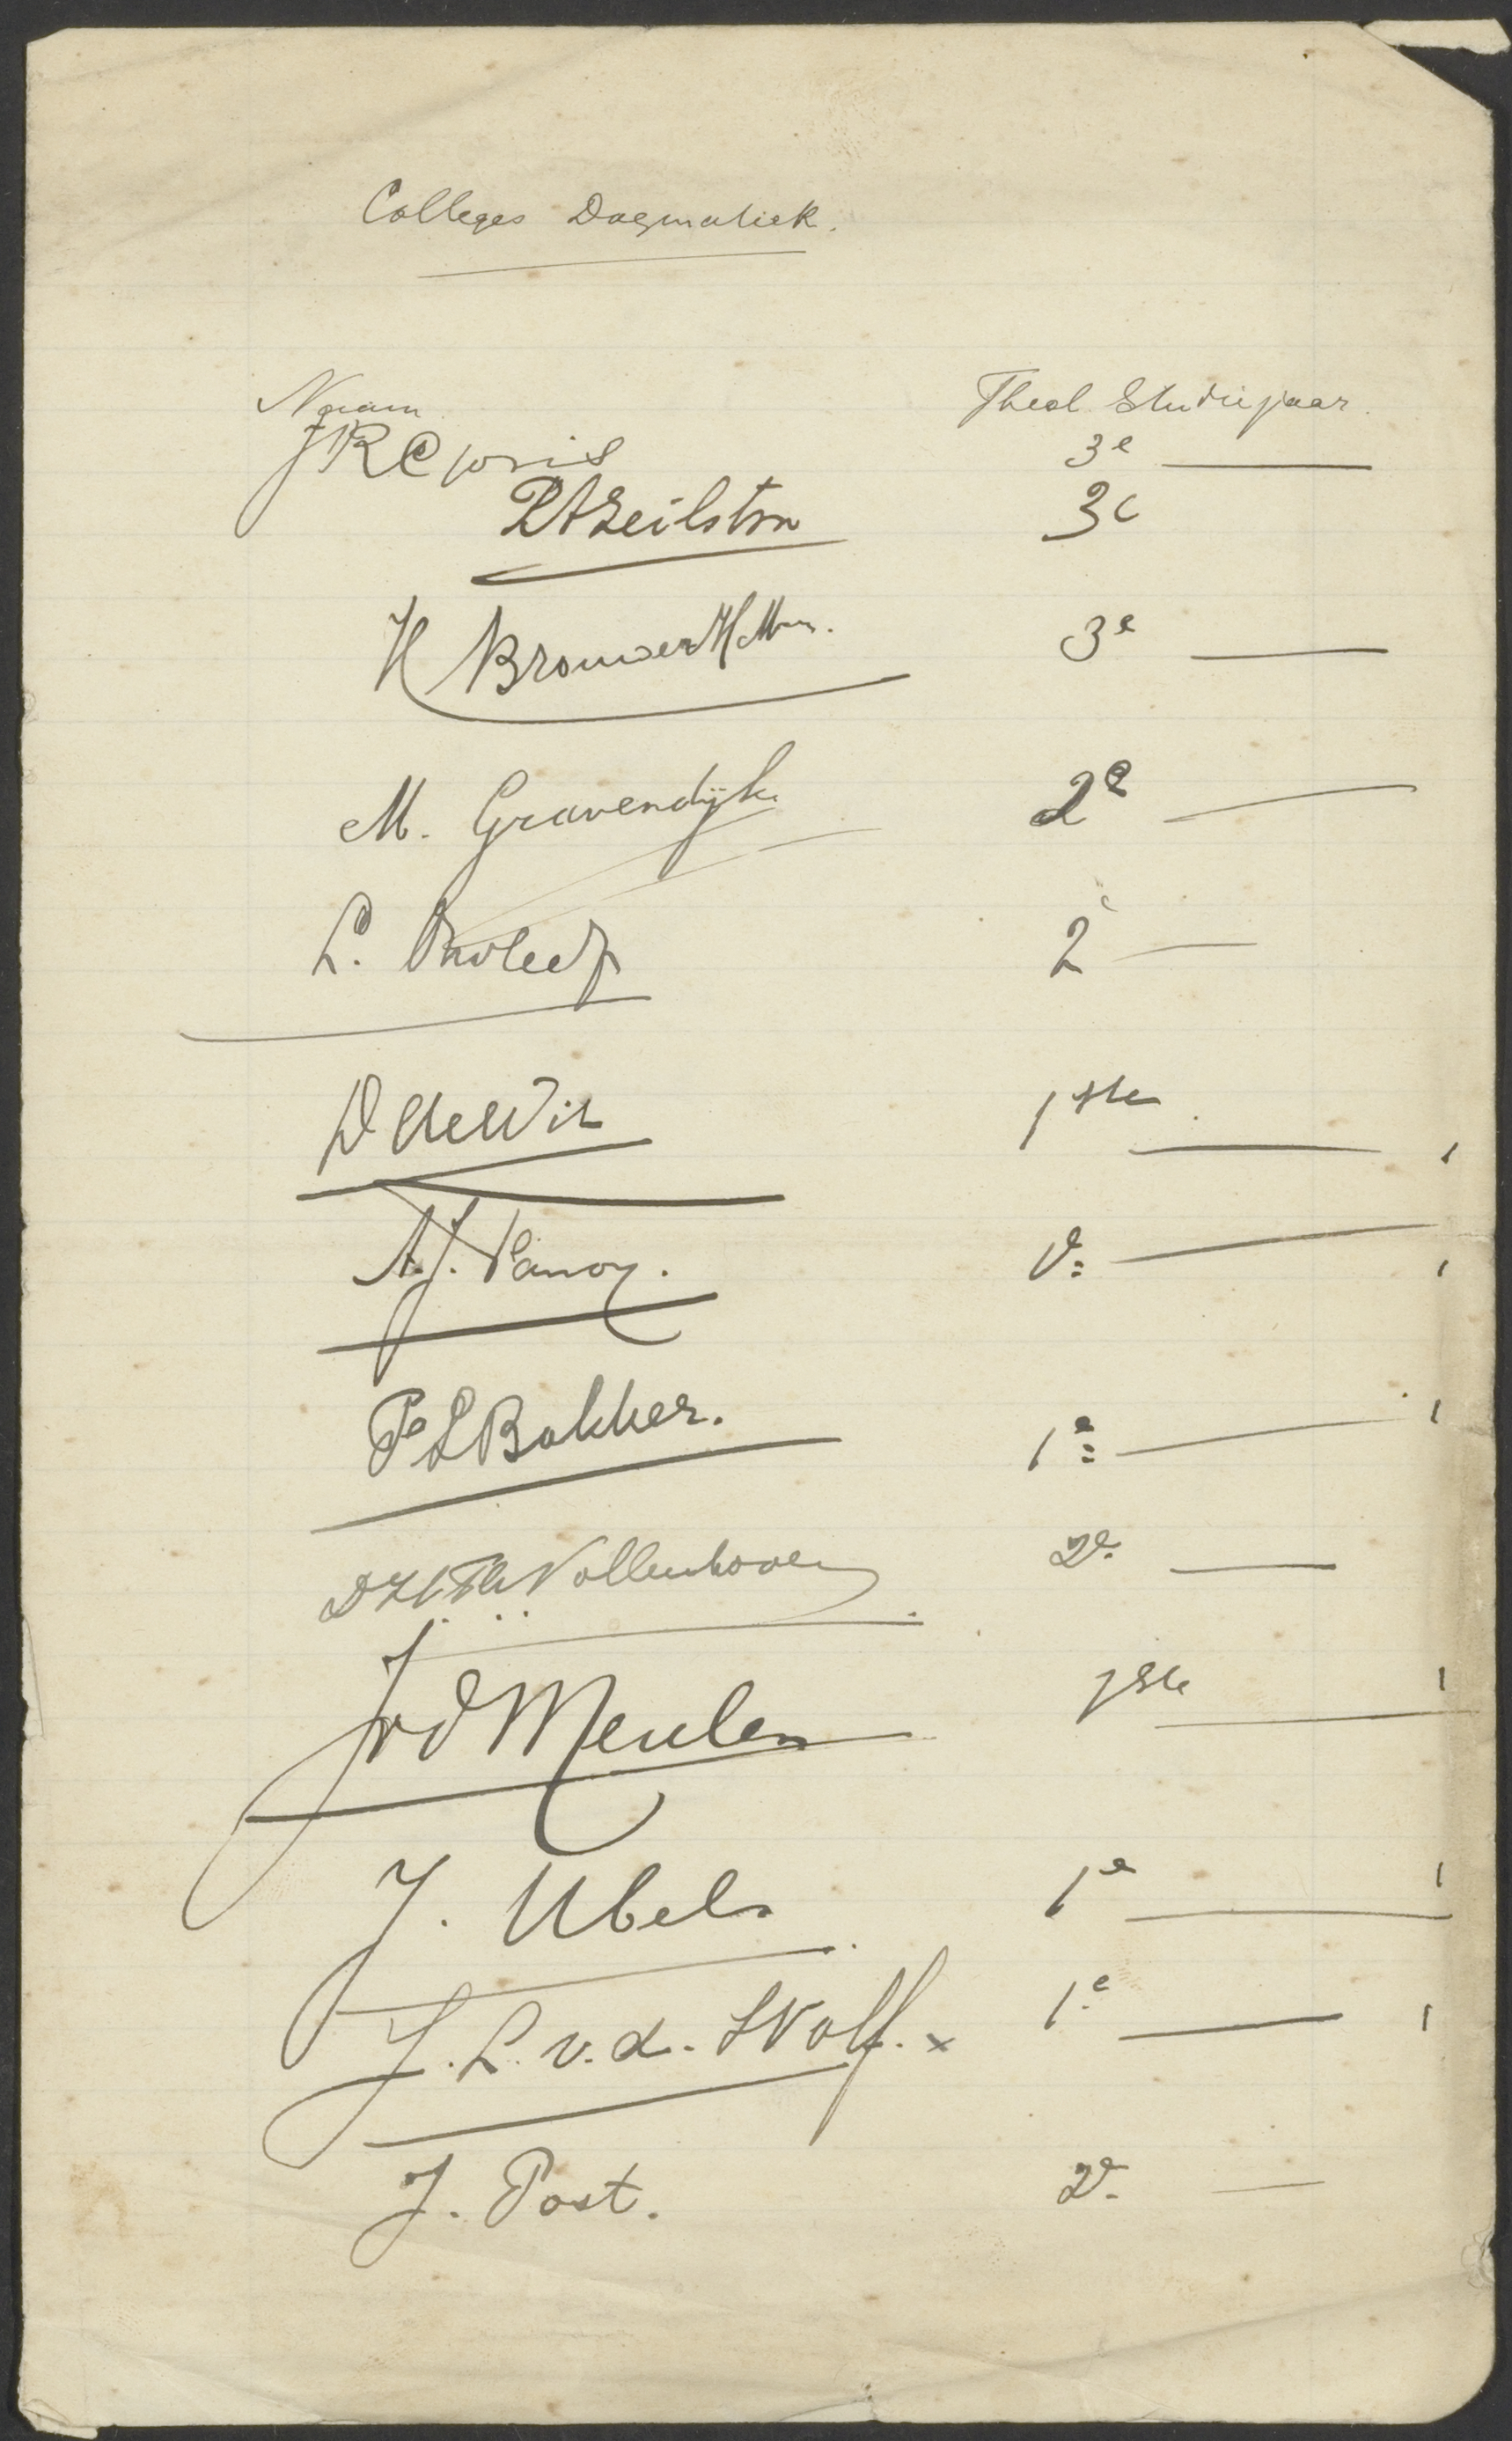 Colleges Dogmatiek.
Naam Theol. Studiejaar.
J R C Joris 3e
3e
H Brouwer HMzn. 3e
M. Gravendijk. 2e
L. 2e
D de Wit 1ste
A.J. 1e
P L Bakker. 1e
D H Th Vollenhoven 2e.
J v d Meulen 1ste
J. Ubels 1e
J. L. v. d. Wolf. x 1.e
J. Post. 2e.